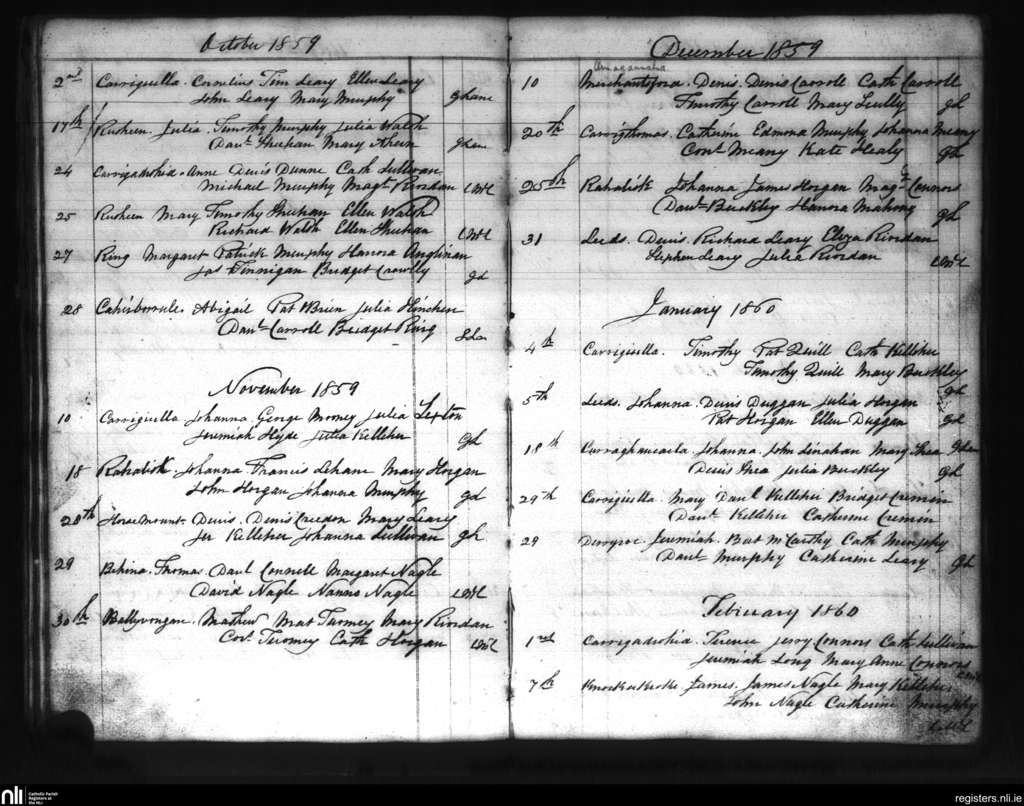 October 1859
2nd Carriguella. Cornelius Tim Leary Ellen Leary
John Leary Mary Murphy Ghane
17th Rusheen. Julia. Timothy Murphy Julia Walsh
Danl. Sheehan Mary Ahern
24 Carrigadrohid. Anne Denis Dunne Cath Sullivan
Michael Murphy Magt. Riordan
25 Rusheen Mary Timothy Sheehan Ellen Walsh
Richard Walsh Ellen Sheehan
27 Ring Margaret Patrick Murphy Hanora Anglinan
Jas Finnigan Bridget Crowlly gd
28 Abigail Pat OBrien Julia Hinchen
Danl. Carroll Bridget Ring
November 1859
10 Carriguella Johanna George Mooney Julia
Jeremiah Hyde Julia Kelleher
18 Rahalisk. Johanna Francis Lehane Mary Horgan
John Horgan Johanna Murphy gd
28th Horsemount Denis. Denis Creedon Mary Leary
Jer Kelleher Johanna Sullivan
29 Behina. Thomas. Danl Connell Margaret Nagle
David Nagle Nanno Nagle
30th Ballyvongan. Mathew Mat Twomey Mary Riordan
Cors. Twomey Cath Horgan
December 1859
10 Denis. Denis Carroll Cath Carroll
Timothy Carroll Mary Scully gd
20th Carrigthomas. Catherine Edmond Murphy Johanna Meany
Cont. Meany Kate Healy
25th Rahalisk Johanna James Horgan Magt. Connors
Danl Buckley Hanora Mahony
31 Leeds. Denis. Richard Leary Eliza Riordan
Stephen Leary Julia Riordan
January 1860
4th Carriguella. Timothy Pat Quill Cath Kelleher
Timothy Quill Mary Buckley
5th Leeds. Johanna. Denis Duggan Julia Horgan
Pat Horgan Ellen Duggan gd
18th Johanna. John Linahan Mary Shea
Denis Shea Julia Buckley
29th Carriguella. Mary Danl Kelleher Bridget Cremin
Danl. Kelleher Catherine Cremin
29 Derryroe Jeremiah. Bat McCarthy Cath Murphy
Danl. Murphy Catherine Leary
February 1860
1st Carrigadrohid. Terence Jerry Connors Cath Sullivan
Jeremiah Long Mary Anne Connors
7th James. James Nagle Mary Kelleher
John Nagle Catherine Murphy
nli Catholic Parish Registers at the NLI
registers.nli.ie